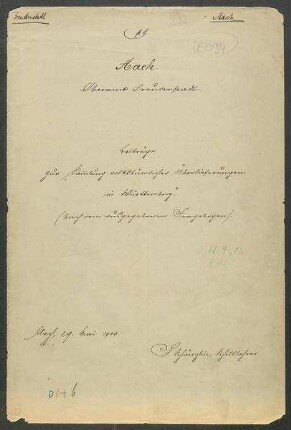 Freudenstadt
Aach
A 9
Aach.
Oberamt Freudenstadt.
Beiträge
zur Sammlung volkstümlicher Überlieferungen
in Württemberg.
(Nach dem ausgegebenen Fragebogen).
Aach, 29. Mai 1900.
Schullehrer